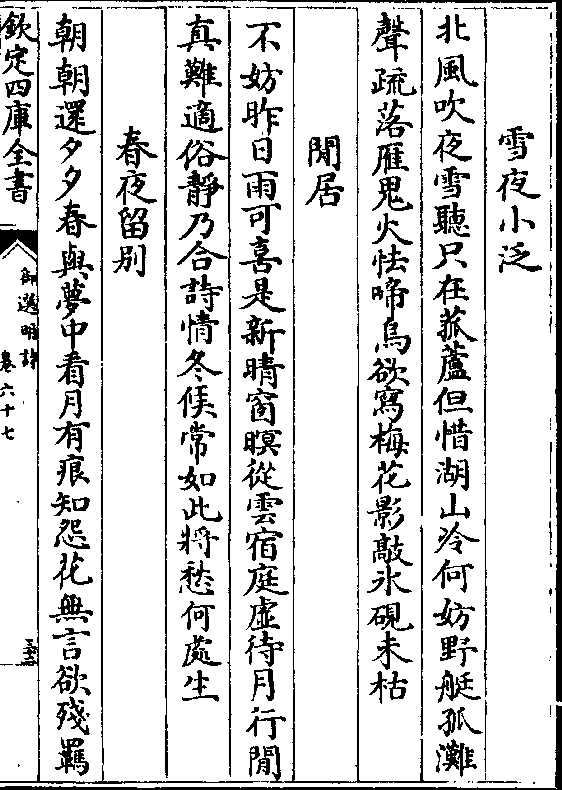 雪夜小泛
北風吹夜雪聽只在菰蘆但惜湖山冷何妨野艇孤灘
聲疏落雁鬼火怯啼烏欲寫梅花影敲氷硯未枯
閒居
不妨昨日雨可喜是新晴窗暝從雲宿庭虛待月行閒
真難適俗靜乃合詩情冬候常如此將愁何處生
春夜留別
朝朝還夕夕春與夢中看月有痕知怨花無言欲殘羈
欽定四庫全書
御選明詩
卷六十七